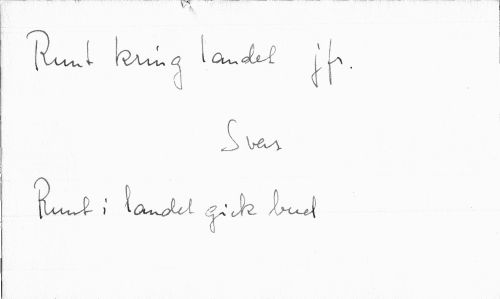 Runt kring landet jfr.
Svens
Runt i landet gick bud